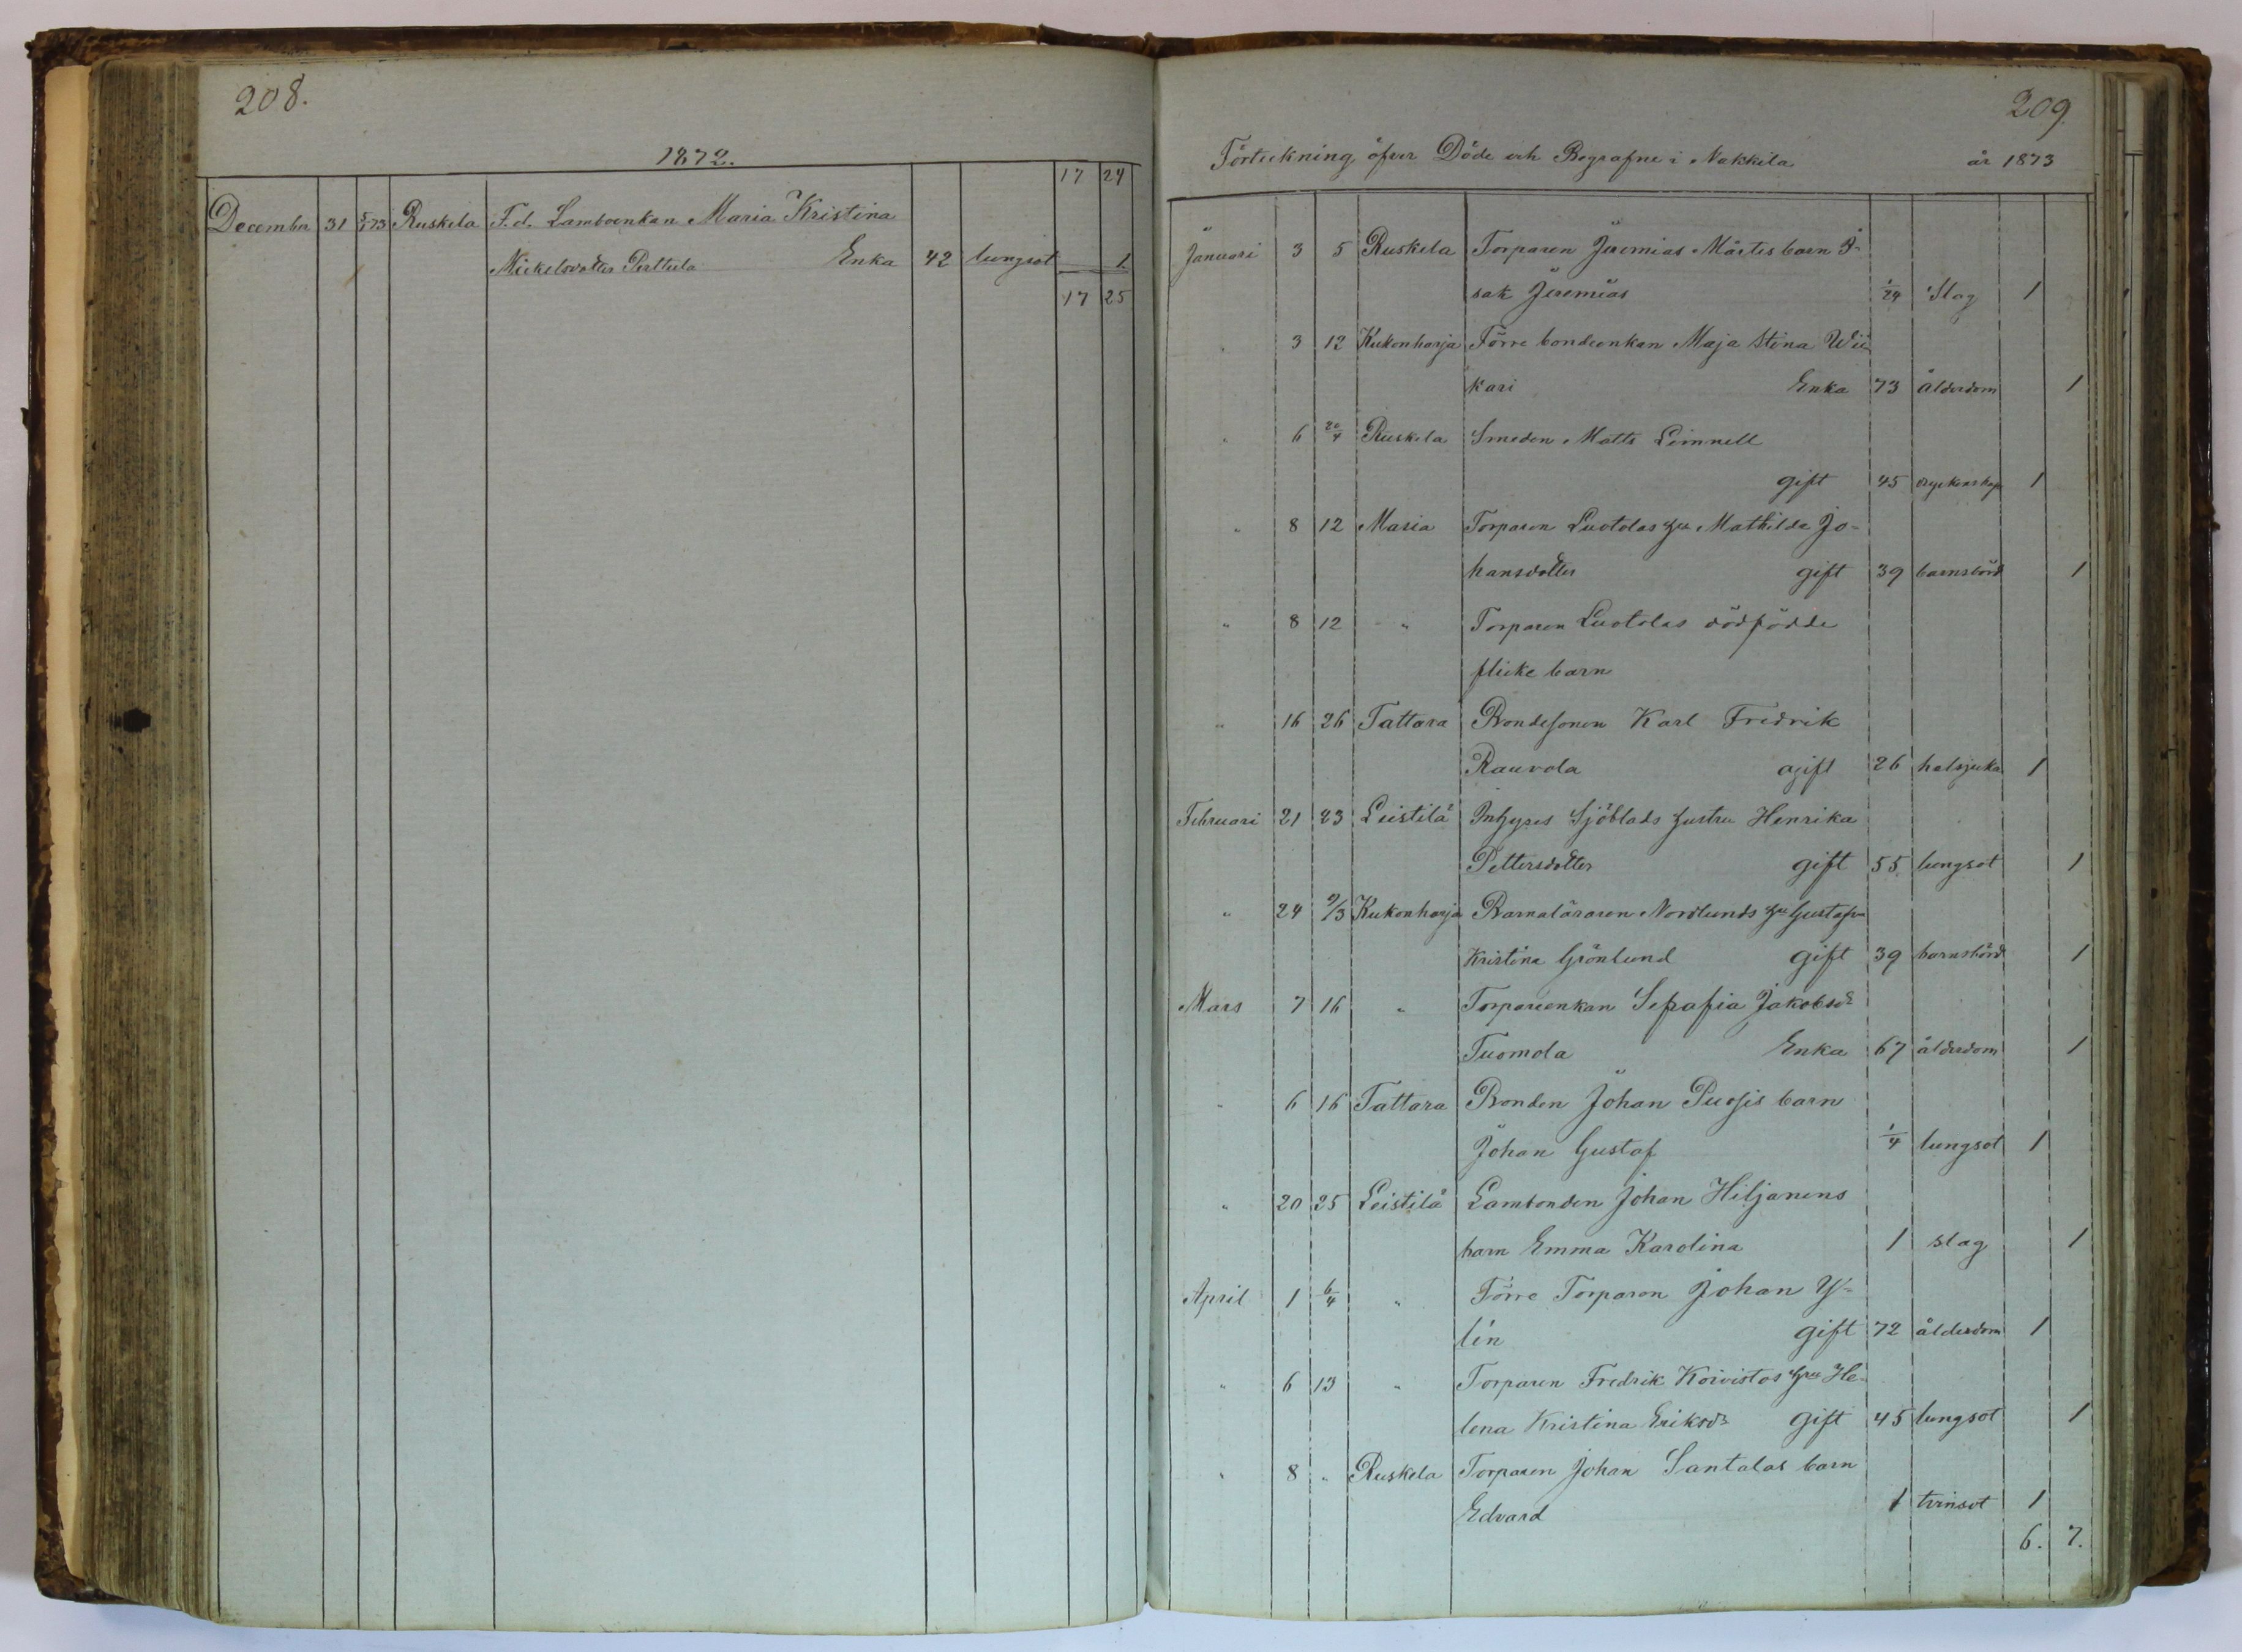 208.
1872.
17 24
December 31 5/1 73 Ruskila F. d. Lamboenkan Maria Kristina
Mickelsdotter Perttula Enka 42 lungsot 1
17 25
209
Förteckning öfver Döde och Begrafne i Nakkila år 1873
Januari 3 5 Ruskila Torparen Jeremias Märtis barn I-
sak Jeremias 1/24 Slag 1
3 12 Kukonharja Förre bondeenkan Maja Stina Wii-
kari Enka 73 ålderdom 1
" 6 20/4 Ruskila Smeden Matts Limnell
gift 45 dryckenskap 1
" 8 12 Masia Torparen Luotolas hu Mathilda Jo-
hansdotter gift 39 barnsbörd 1
" 8 12 " Torparen Luotolas dödfödde
flicke barn
" 16 26 Tattara Bondesonen Karl Fredrik
Rauvola ogift 26 halsjuka 1
Februari 21 23 Leistilä Inhyses Sjöblads hustru Henrika
Pettersdotter gift 55 lungsot 1
" 24 9/3 Kukonharja Barnaläraren Nordlunds hu Gustafva
Kristina Grönlund gift 39 barnsbörd 1
Mars 7 16 " Torpareenkan Serafia Jakobsd:r
Tuomola Enka 67 ålderdom 1
" 6 16 Tattara Bonden Johan Puosis barn
Johan Gustaf 1/4 lungsot 1
" 20 25 Leistilä Lambonden Johan Hiljanens
barn Emma Karolina 1 slag 1
April 1 6/4 " Förre Torparen Johan Y-
lin gift 72 ålderdom 1
" 6 13 " Torparen Fredrik Koivistos hru He-
lena Kristina Eriksd:r gift 45 lungsot 1
" 8 " Ruskila Torparen Johan Santalas barn
Edvard 1 tvinsot 1
6. 7.